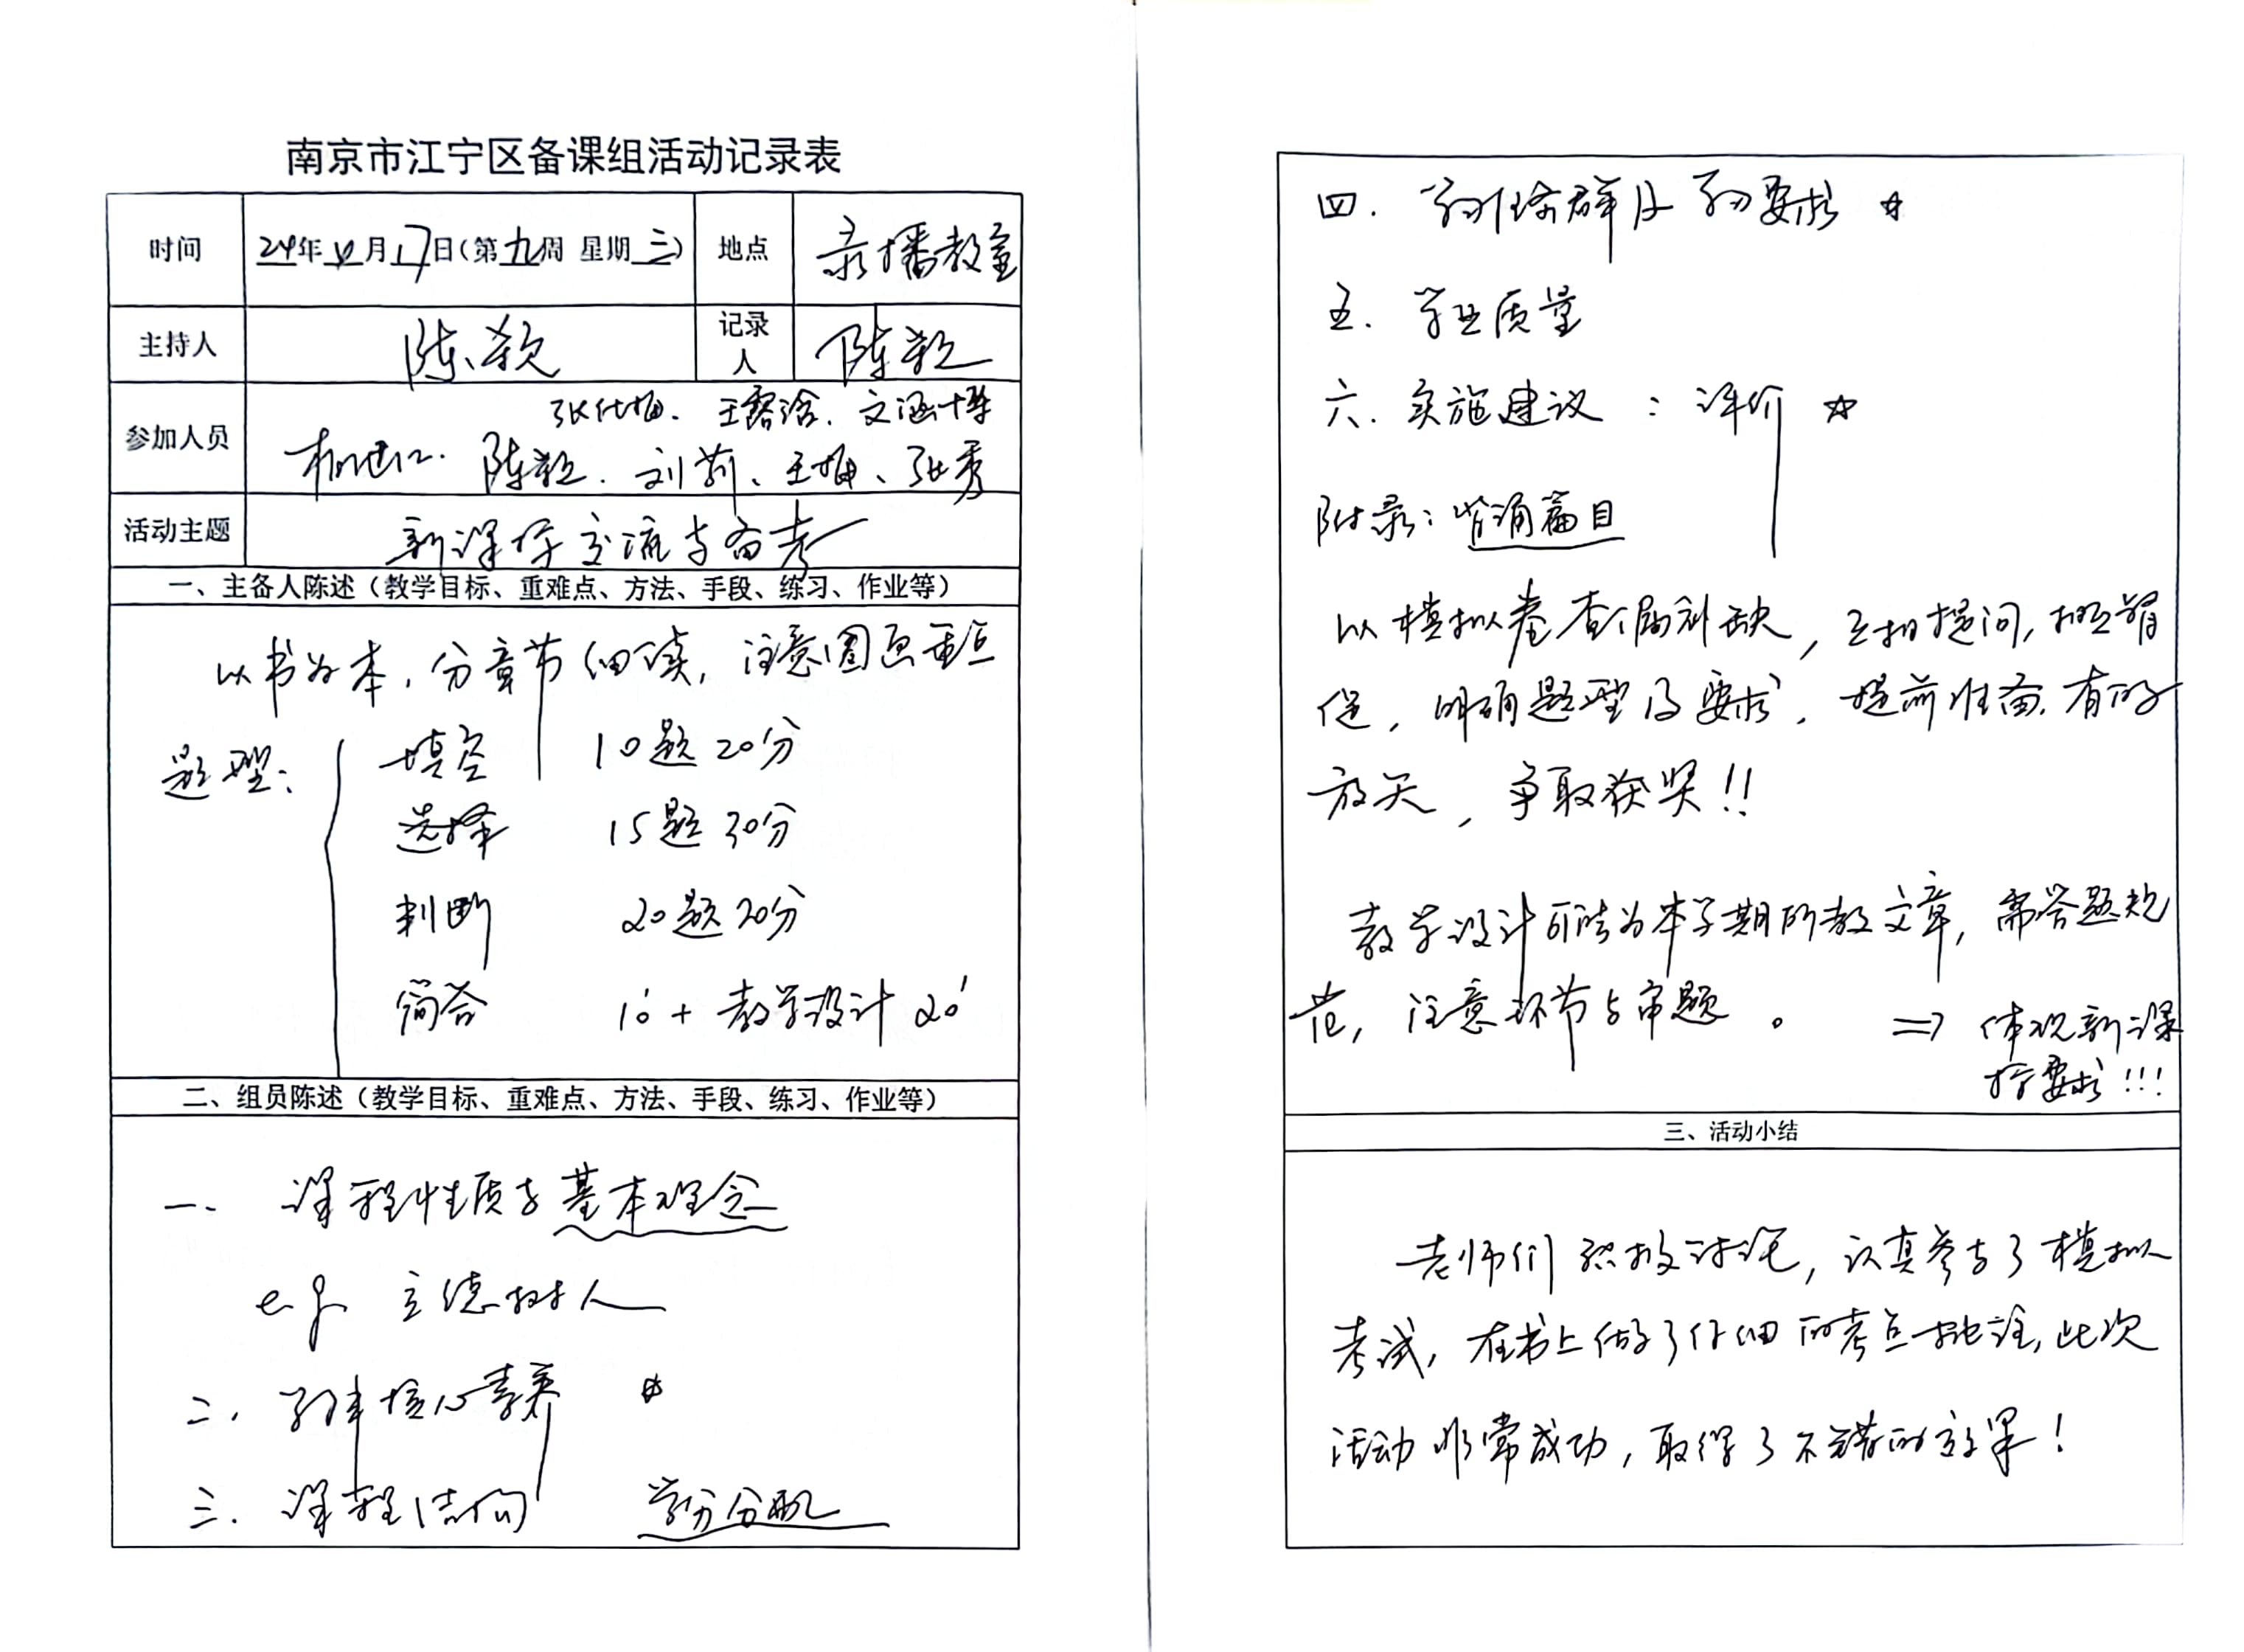 南京市江宁区备课组活动记录表
时间 24年 4月17日(第九周 星期三) 地点 录播教室
主持人 陈颖 记录人 陈颖
张代梅. 王露浛. 文涵
参加人员 陈颖. 刘莉、王梅、张秀
活动主题 新课标交流与备考
一、主备人陈述（教学目标、重难点、方法、手段、练习、作业等）
以书为本，分章节细读，注意圈画重点
题型： 填空 10题 20分
选择 15题 30分
判断 20题 20分
简答 10' + 教学设计 20'
二、组员陈述（教学目标、重难点、方法、手段、练习、作业等）
一、 课程性质与基本理念
e.g. 立德树人
二、 学科核心素养 ☆
三. 课程结构 学分分配
四. 学习任务群及学习要求 ☆
五. 学业质量
六. 实施建议 ：评价 ☆
附录：背诵篇目
以模拟卷查漏补缺，互相提问，相互督
促，明确题型及要求，提前准备，有的
放矢，争取获奖!!
教学设计可能为本学期所教文章，需答题规
范，注意环节与审题。 ⇒ 体现新课
标要求!!!
三、活动小结
老师们积极讨论，认真参与了模拟
考试，在书上做了仔细的考点批注，此次
活动非常成功，取得了不错的效果！